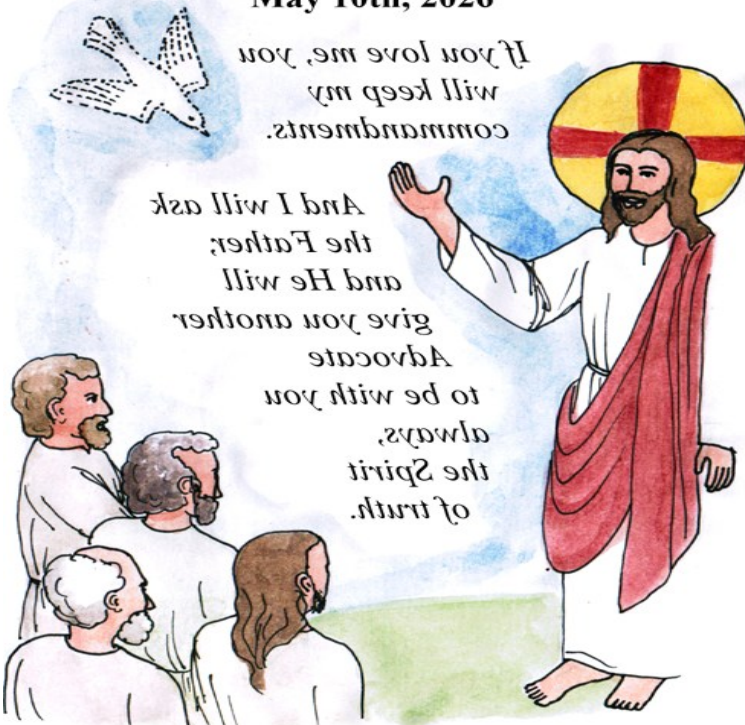 May 10th, 2026
If you love me, you
will keep my
commandments.
And I will ask
the Father,
and He will
give you another
Advocate
to be with you
always,
the Spirit
of truth.